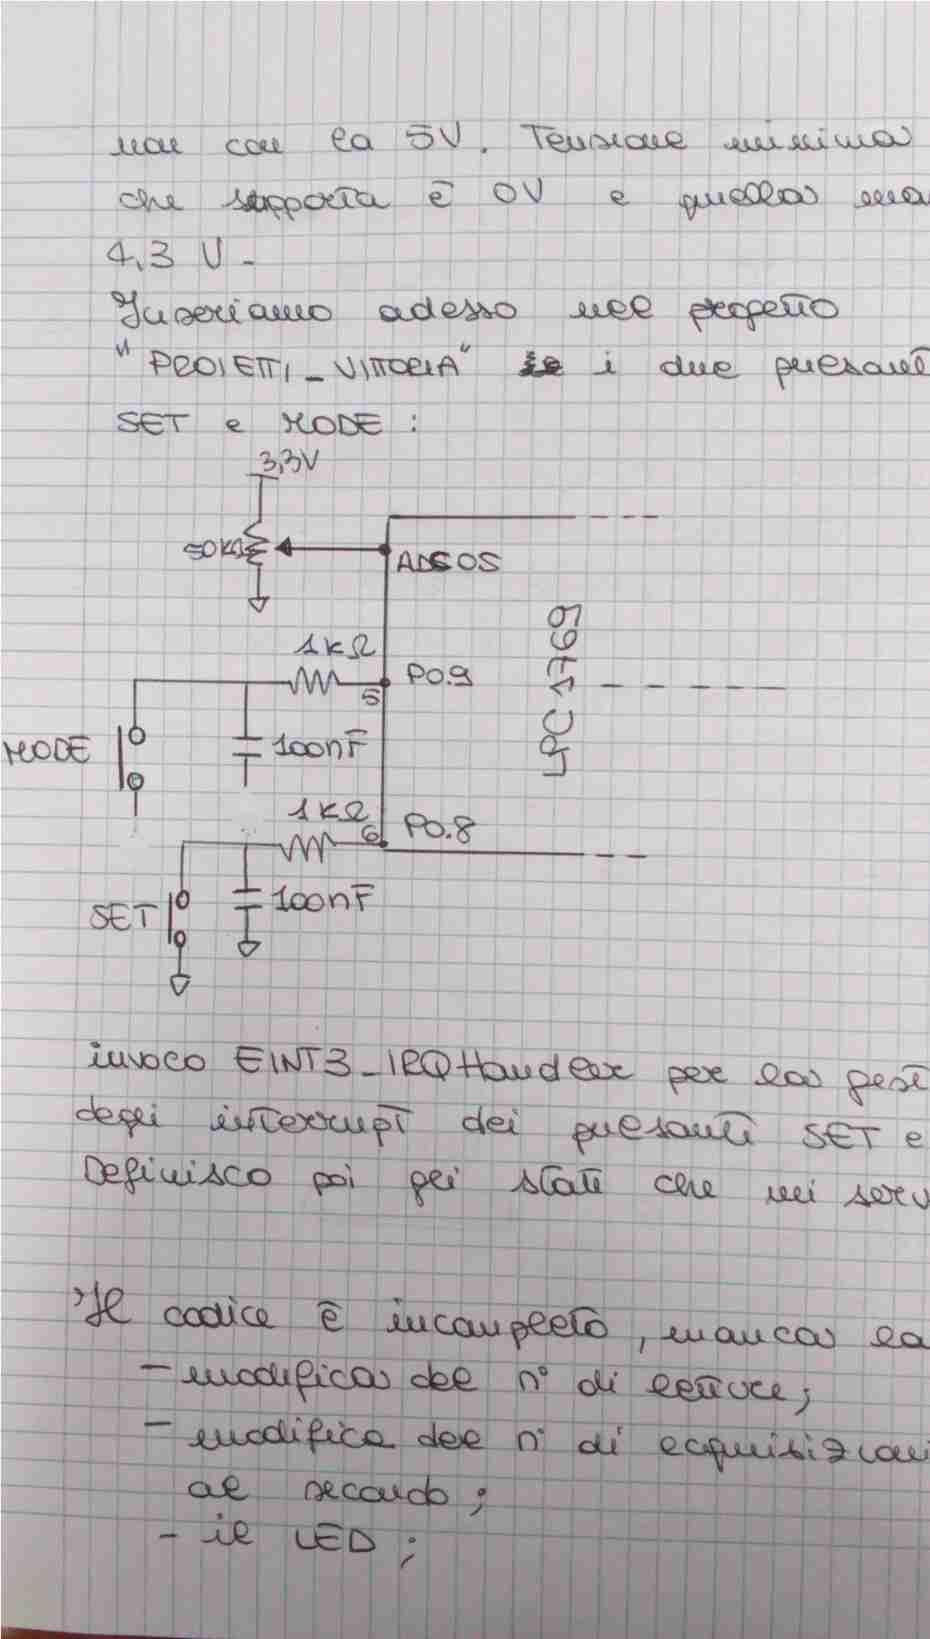 non con la 5V. Tensione minima
che supporta è 0V e quella ma
4,3 V -
Inseriamo adesso nel progetto
"PROIETTI_VITTORIA" i due pulsanti
SET e MODE :
3,3V
50KΩ
1KΩ
P0.9
5
LPC 1769
MODE
100nF
1KΩ
6
P0.8
SET
100nF
invoco EINT3_IRQHandler per la gest
degli interrupt dei pulsanti SET e
Definisco poi gli stati che mi serv
Il codice è incompleto, manca la
- modifica del n° di letture;
- modifica del n° di acquisizioni
al secondo;
- il LED;